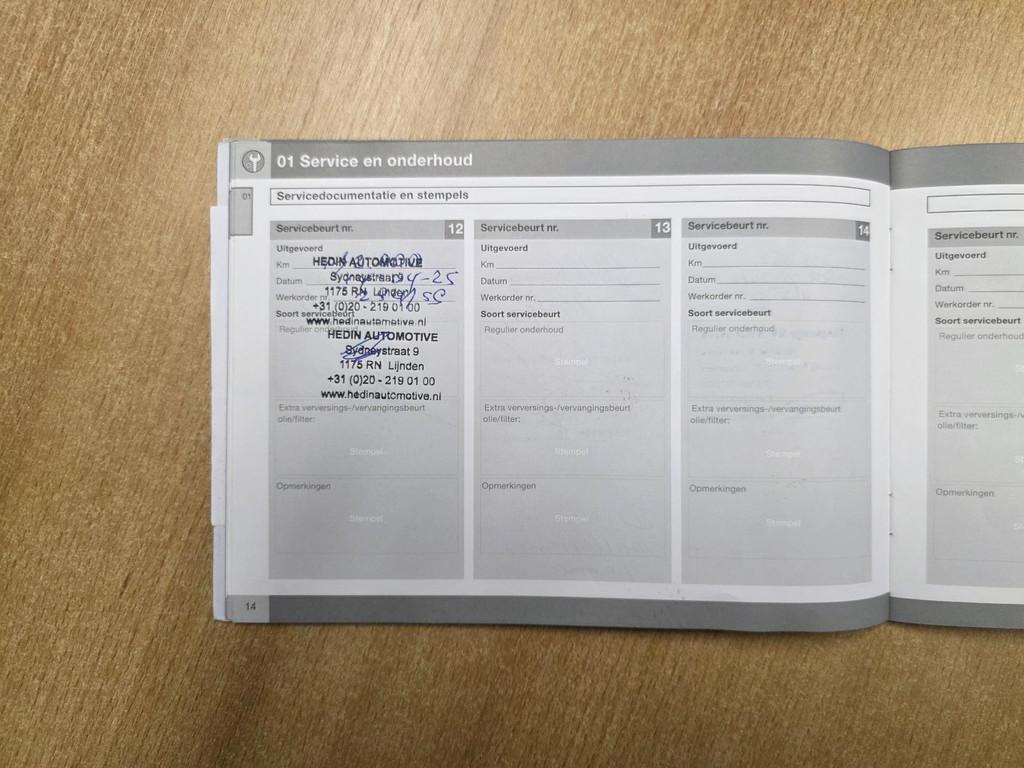 01 Service en onderhoud
01
Servicedocumentatie en stempels
Servicebeurt nr. 12
Uitgevoerd
Km
Datum
Werkorder nr.
HEDIN AUTOMOTIVE
Sydneystraat 9
1175 RN Lijnden
+31 (0)20 - 219 01 00
www.hedinautomotive.nl
Soort servicebeurt
Regulier onderhoud
HEDIN AUTOMOTIVE
Sydneystraat 9
1175 RN Lijnden
+31 (0)20 - 219 01 00
www.hedinautomotive.nl
Extra verversings-/vervangingsbeurt
olie/filter:
Stempel
Opmerkingen
Stempel
Servicebeurt nr. 13
Uitgevoerd
Km
Datum
Werkorder nr.
Soort servicebeurt
Regulier onderhoud
Stempel
Extra verversings-/vervangingsbeurt
olie/filter:
Stempel
Opmerkingen
Stempel
Servicebeurt nr. 14
Uitgevoerd
Km
Datum
Werkorder nr.
Soort servicebeurt
Regulier onderhoud
Stempel
Extra verversings-/vervangingsbeurt
olie/filter:
Stempel
Opmerkingen
Stempel
14
Servicebeurt nr.
Uitgevoerd
Km
Datum
Werkorder nr.
Soort servicebeurt
Regulier onderhoud
Extra verversings-
olie/filter:
Opmerkingen